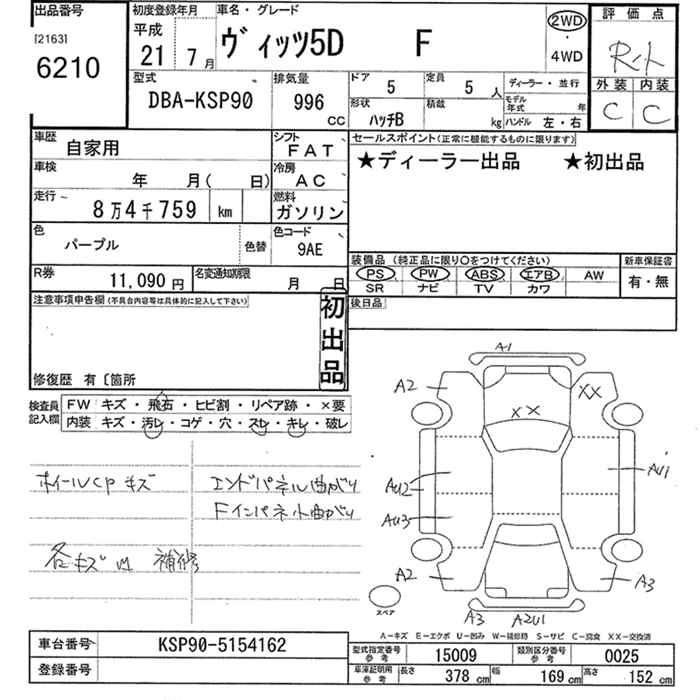 出品番号
[2163]
6210
初度登録年月
平成
21 7月
車名・グレード
ヴィッツ5D F
2WD
・
4WD
評価点
R
外装 内装
C C
型式
DBA-KSP90
排気量
996
CC
ドア
5
定員
5 人
ディーラー・並行
形状
ハッチB
積載
kg
モデル年式 年
ハンドル 左・右
車歴
自家用
シフト
FAT
車検
年 月( 日)
冷房
AC
走行
8万4千759 km
燃料
ガソリン
色
パープル
色替
色コード
9AE
R券
11,090円
名変通知期限
月 日
セールスポイント(正常に機能するものに限ります)
★ディーラー出品 ★初出品
装備品 (純正品に限り○をつけてください)
PS PW ABS エアB AW
SR ナビ TV カワ
新車保証書
有・無
後日品
注意事項申告欄(不具合内容等は具体的に記入して下さい)
初出品
修復歴 有〔箇所
検査員記入欄
FW キズ・飛石・ヒビ割・リペア跡・×要
内装 キズ・汚レ・コゲ・穴・スレ・キレ・破レ
ホイールCPキズ
エンドパネル曲がり
Fインパネル曲がり
各キズ 補修
A1
A2
XX
XX
AU1
AU2
AU3
A2
A3
A3 A2U1
スペア
A-キズ E-エクボ U-凹み W-補修跡 S-サビ C-腐食 XX-交換済
車台番号
KSP90-5154162
登録番号
型式指定番号
参考
15009
類別区分番号
参考
0025
車庫証明用
参考
長さ 378 cm 幅 169 cm 高さ 152 cm